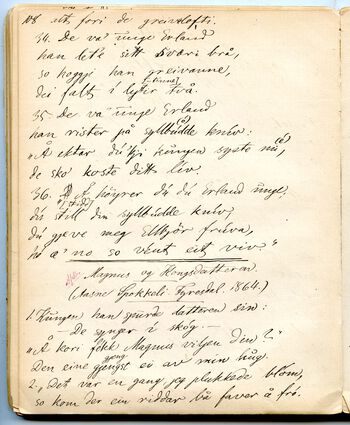 108 uti fori de greivelofti.
34. De va' unge Erland
han leti sitt sværi brå,
so hoggji han greivanne,
dei falt i lejtir två.
35. De va' unge Erland
han rister på syllbudde kniv:
"Å ektar du 'kji kungen syste
de sko' koste ditt liv.
36. høyrer du du Erland unge,
du din syllbudde kniv,
du gjeve meg fruva,
ho a' no so vent eit viv."
Magnus og Kongsdatteren.
(Aasne Fyresdal. 1864.)
1. Kungen han spurde datteren sin:
— De syng i skog —
"Å kori fekk Magnus viljen din?"
Den eine gjengst ei av min hug.
2. Det var en gang jeg plukkede blom,
so kom der en riddar bå faver å fró.